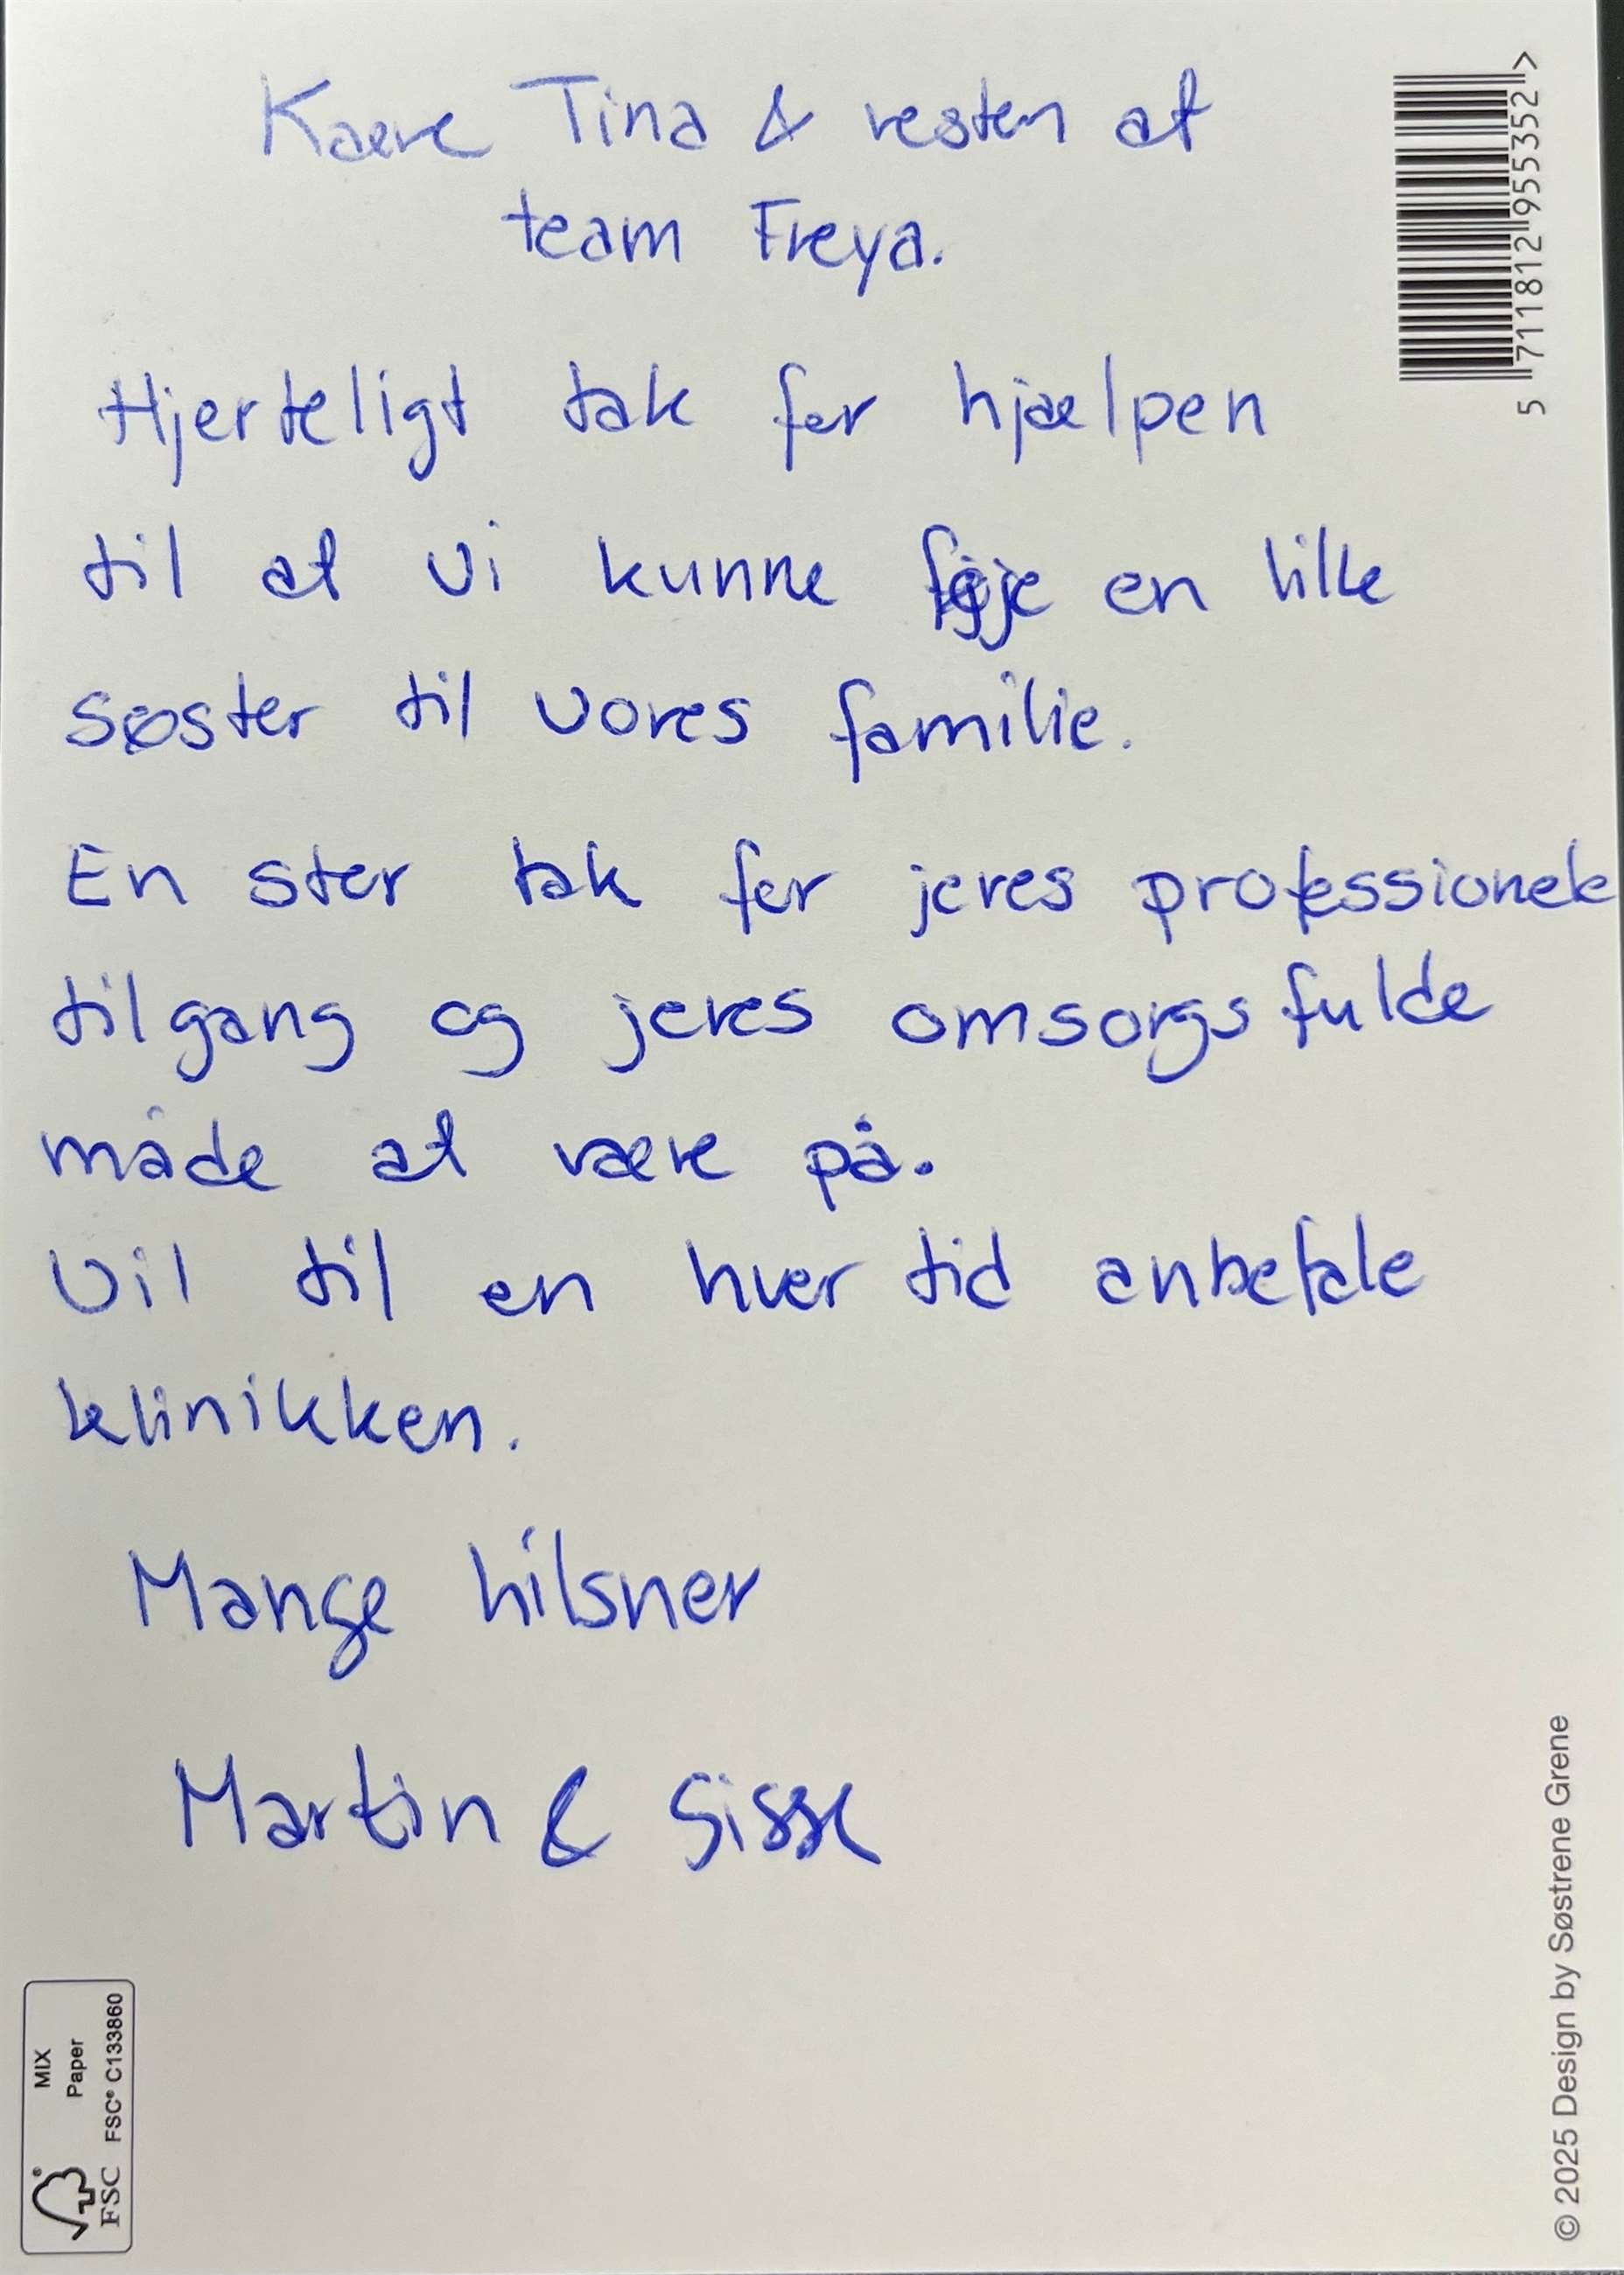 Kære Tina & resten af
team Freya.
Hjerteligt tak for hjælpen
til at vi kunne føje en lille
søster til vores familie.
En stor tak for jeres professionele
tilgang og jeres omsorgsfulde
måde at være på.
Vil til en hver tid anbefale
klinikken.
Mange hilsner
Martin & Sisse
5 711812 955352 >
© 2025 Design by Søstrene Grene
FSC
MIX
Paper
FSC® C133860